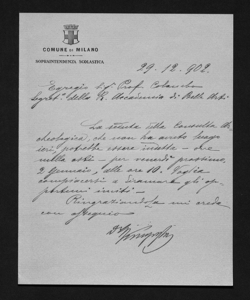 COMUNE DI MILANO
SOPRAINTENDENZA SCOLASTICA
29.12.902.
Egregio Sig. Prof. Colombo
Segret. della R. Accademia di Belle Arti
La seduta della Consulta Ar-
cheologica, che non ha avuto luogo
ieri, potrebbe essere indetta - due
nella ... - per venerdì prossimo,
2 Gennaio, alle ore 10. Voglia
compiacersi a diramare gli op-
portuni inviti.
Ringraziandola mi creda
con ossequio